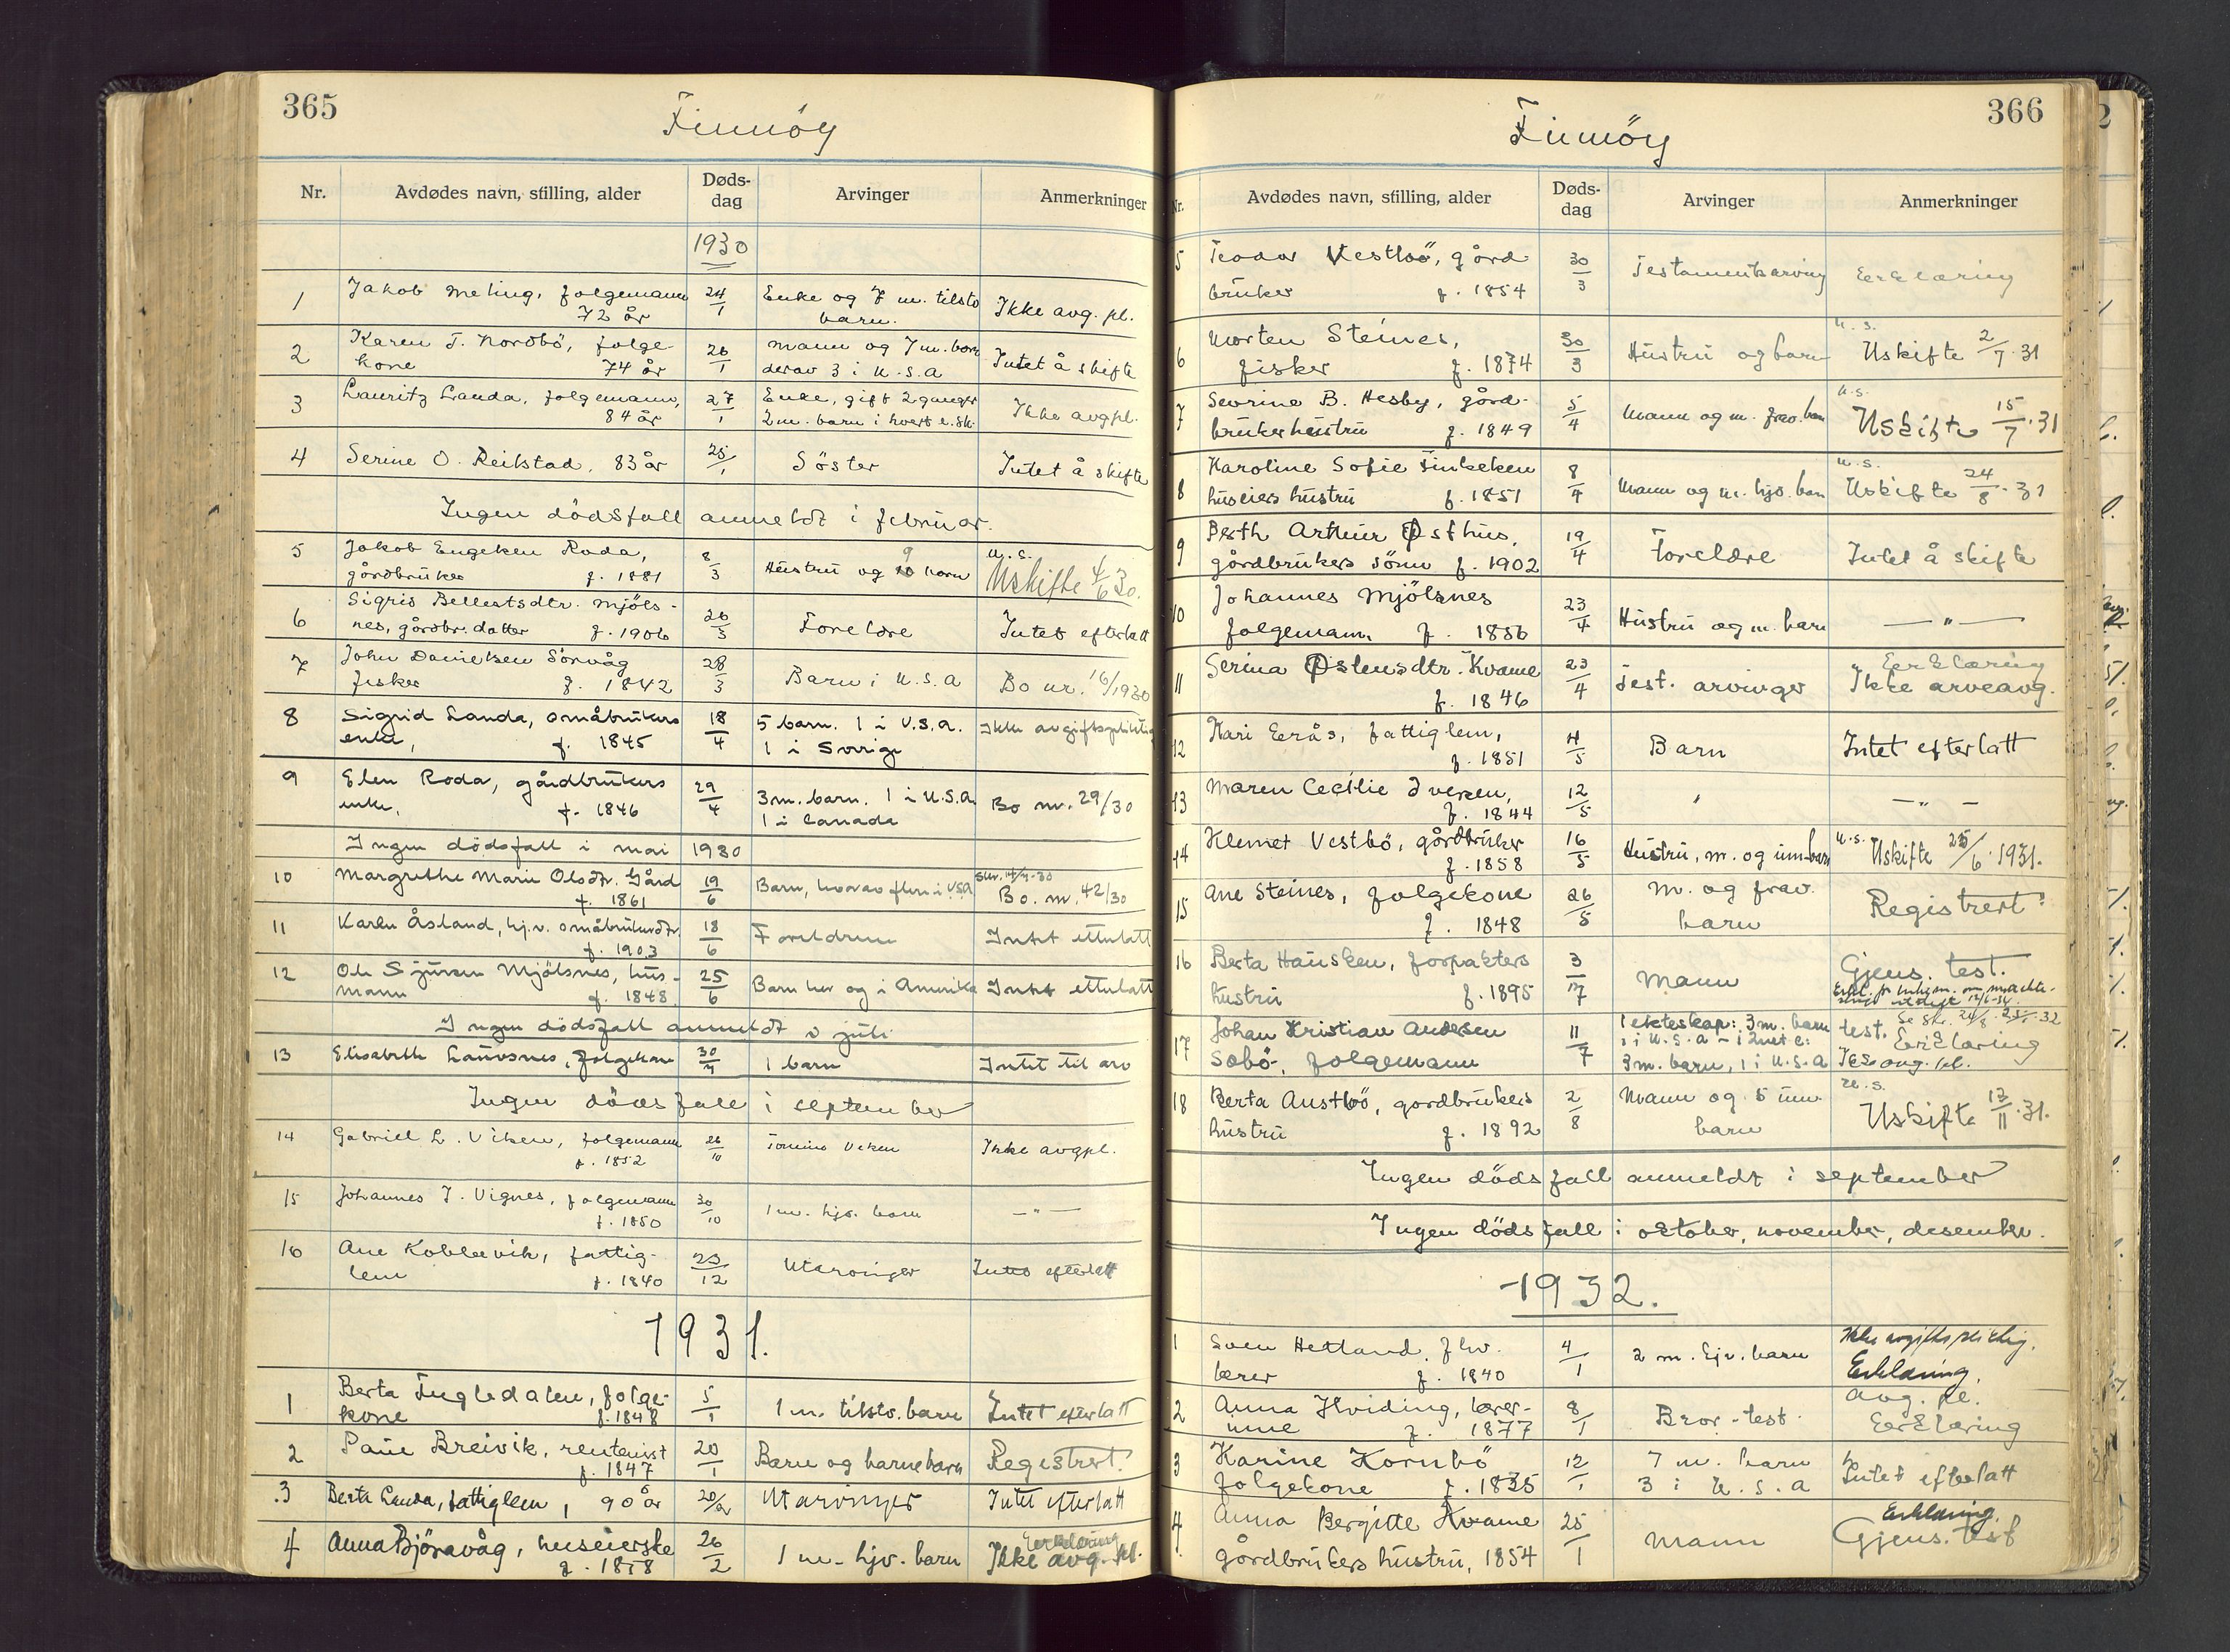 365
Finnöy
Nr. Avdødes navn, stilling, alder Døds-dag Arvinger Anmerkninger
1930
1 Jakob Meling, folgemann 24/1 Enke og 7 m. tilsto Ikke avg. pl.
72 år barn.
2 Karen T. Nordbö, folge- 26/1 Mann og 7 m. barn Intet å skifte
kone 74 år derav 3 i U.S.A
3 Lauritz Landa, folgemann, 27/1 Enke, gift 2 ganger Ikke avgpl.
84 år 2 m. barn i hvert e.sk.
4 Serine O. Reilstad, 83 år 28/1 Söster Intet å skifte
Ingen dödsfall anmeldt i februar.
5 Jakob Engelsen Roda, 8/3 Hustru og 9 barn U.S.
gårdbruker f. 1881 Uskifte 4/6 30.
6 Sigrid Bellestsdtr. Mjöls- 26/3 Foreldre Intet efterlatt
nes, gårdbr. datter f. 1906
7 John Danielsen Sörvåg 28/3 Barn i U.S.A Bo nr. 16/1930
fisker f. 1842
8 Sigrid Landa, småbrukers 18/4 5 barn. 1 i U.S.A. Ikke avgiftspliktig
enke, f. 1845 1 i Sverige
9 Elen Roda, gårdbrukers 29/4 3 m. barn. 1 i U.S.A. Bo nr. 29/30
enke, f. 1846 1 i Canada
Ingen dödsfall i mai 1930
10 Margrethe Marie Olsdtr. Gård 19/6 Barn, hvorav flere i USA Bo. nr. 42/30
f. 1861
11 Karen Åsland, hj.v. småbrukerdtr. 18/6 Foreldrene Intet etterlatt
f. 1903
12 Ole Sjursen Mjölsnes, hus- 25/6 Barn her og i Amerika Intet etterlatt
mann f. 1848.
Ingen dödsfall anmeldt i juli
13 Elisabeth Lauvsnes, folgekone 30/ 1 barn Intet til arv
Ingen dödsfall i september
14 Gabriel L. Viken, folgemann 26/10 Ikke avgpl.
f. 1852
15 Johannes J. Vignes, folgemann 30/10 1 m. hjv. barn —"—
f. 1850
16 Ane Koblevik, fattig- 23/12 Utarvinger Intet efterlatt
lem f. 1840
1931.
1 Berta Fugledalen, folge- 5/1 1 m. tilstv. barn Intet efterlatt
kone f. 1848
2 Paul Breivik, rentenist 20/1 Barn og barnebarn Registrert.
f. 1847
3 Berta Landa, fattiglem, 90 år 20/2 Utarvinger Intet efterlatt
4 Anna Björavåg, huseierske 26/2 1 m. hjv. barn Erklæring
f. 1858 Ikke avg. pl.
366
Finnöy
Nr. Avdødes navn, stilling, alder Døds-dag Arvinger Anmerkninger
5 Teodor Vestbö, gård 30/3 Testamentsarving Erklæring
bruker f. 1854
6 Morten Steines, 30/3 Hustru og barn U.S.
fisker f. 1874 Uskifte 2/7.31
7 Sevrine B. Hesby, gård- 5/4 Mann og m. frav. barn U.S.
brukerhustru f. 1849 Uskifte 15/7.31
8 Karoline Sofie 8/4 Mann og m. hjv. barn U.S.
huseiers hustru f. 1851 Uskifte 24/8.31
9 Berth Arthur Østhus, 19/4 Foreldre Intet å skifte
gårdbrukers sönn f. 1902
10 Johannes Mjölsnes 23/4 Hustru og m. barn —"—
folgemann f. 1856
11 Serina Østensdtr. Kvame 23/4 Test. arvinger Erklæring
f. 1846 Ikke arveavg.
12 Kari Eerås, fattiglem, 4/5 Barn Intet efterlatt
f. 1851
13 Maren Cecilie Iversen, 12/5 " —"—
f. 1844
14 Klemet Vestbö, gårdbruker 16/5 Hustru, m. og um. barn U.S. Uskifte 25/6.1931.
f. 1858
15 Ane Steines, folgekone 26/5 M. og frav. Registrert.
f. 1848 barn
16 Berta Hausken, forpakters 3/7 Mann Gjens. test.
hustru f. 1895
17 Johan Kristian Andersen 11/7 1 ekteskap: 3 m. barn test.
Sobö, folgemann 1 i U.S.A - i 2net e: Erklæring
3 m. barn, 1 i U.S.A Ikke avg. pl.
18 Berta Austbö, gardbrukers 2/8 Mann og 5 um. U.S.
hustru f. 1892 barn Uskifte 13/11.31.
Ingen dödsfall anmeldt i september
Ingen dödsfall i oktober, november, desember.
1932.
1 Sven Hetland, fhv. 4/1 2 m. hjv. barn Ikke avgiftspliktig.
lærer f. 1840 Erklæring.
2 Anna Hviding, lærer- 8/1 Bror - test. avg. pl.
inne f. 1877 Erklæring
3 Karine Kornbö 12/1 7 m. barn Intet efterlatt
folgekone f. 1835 3 i U.S.A
4 Anna Bergitte Kvame 25/1 Mann Erklæring.
gårdbrukers hustru, 1854 Gjens. test